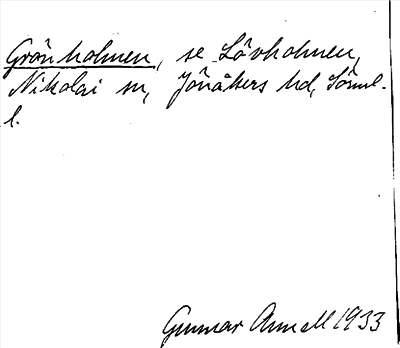 Grönholmen, se Lövholmen,
Nikolai sn, Jönåkers hd, Söml.
l.
Gunnar Annell 1933